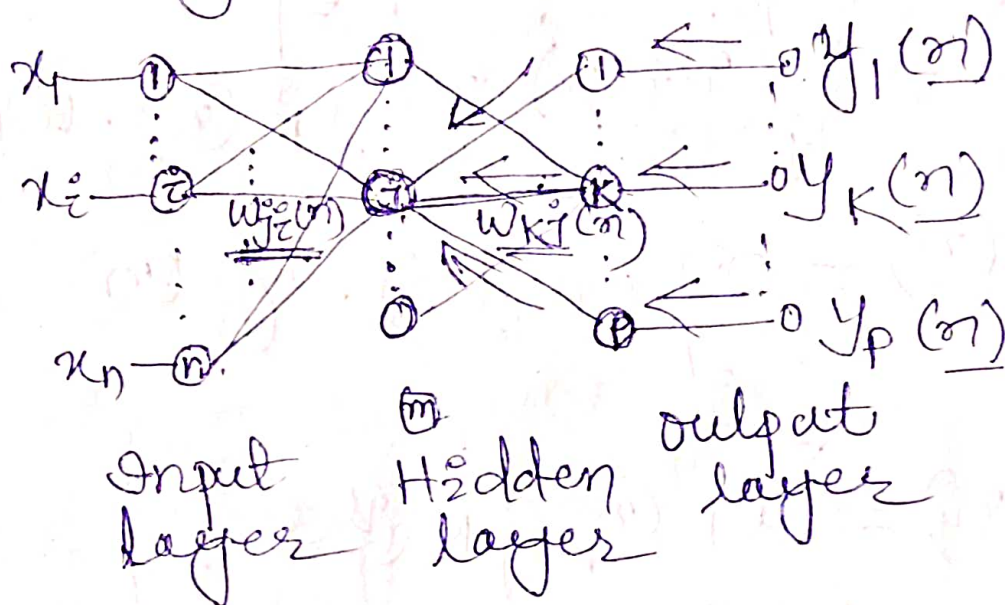 x₁ 1 1 1 y₁(n)
xᵢ i j K yK(n)
wji(n) wKj(n)
xn n p yp(n)
m
Input layer
Hidden layer
output layer